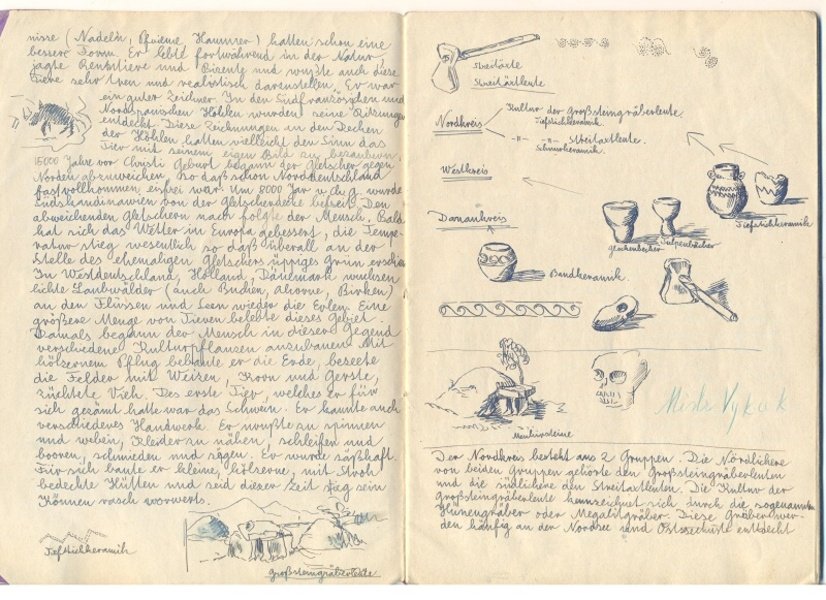 nisse (Nadeln, Pfrieme, Hammer) hatten schon eine
bessere Form. Er lebte fortwährend in der Natur,
jagte Renntiere und Bisente und wußte auch diese
Tiere sehr treu und realistisch darenstellen. Er war
ein guter Zeichner. In den Südfranzösischen und
Nordspanischen Höhlen wurden seine Ritzungen
entdeckt. Diese Zeichnungen in den Decken
der Höhlen hatten vielleicht den Sinn das
Tier mit seinem eigen Bild zu bezaubern.
15000 Jahre vor Christi Geburt begann der Gletscher gegen
Norden abzuweichen. So daß schon Norddeutschland
fast vollkommen eisfrei war. Um 8000 Jar v. ch. g. wurde
Südskandinawien von der Gletscherdecke befreit. Den
abweichenden Gletschern nach folgte der Mensch. Bald
hat sich das Wetter in Europa gebessert, die Tempe-
ratur stieg wesentlich so daß überall an der
Stelle des ehemaligen Gletschers üppiges Grün erschien
In Westdeutschland, Holland, Dänemark wuchsen
lichte Laubwälder (auch Buchen, Ahorne, Birken)
an den Flüssen und Seen wieder die Erlen. Eine
größere Menge von Tieren belebte dieses Gebiet.
Damals begann der Mensch in dieser Gegend
verschiedene Kulturpflanzen anzubauen. Mit
hölzernem Pflug bebaute er die Erde, beseete
die Felder mit Weizen, Korn und Gerste,
züchtete Vieh. Des erste Tier, welches er für
sich gezämt hatte war das Schwein. Er kannte auch
verschiedenes Handwerk. Er wußte zu spinnen
und weben, Kleider zu nähen, schleifen und
booren, schmieden und sägen. Er wurde säßhaft.
Für sich baute er kleine, hölzerne, mit Stroh
bedeckte Hütten und seid dieser Zeit stag sein
Können rasch vorwerts.
Tiefstichkeramik
Großsteingräberleute
Streitäxte
Streitäxtleute
Nordkreis
Kultur der Großsteingräberleute.
Tiefstichkeramik
-"- -"- Streitaxtleute.
Schnurkeramik
Westkreis
Donaukreis
Glockenbecher
Tulpenbecher
Tiefstichkeramik
Bandkeramik
Menhirsteine
Der Nordkreis besteht aus 2 Gruppen. Die Nördlichere
von beiden Gruppen gehörte den Großsteingräberleuten
und die südlichere den Streitaxtleuten. Die Kultur der
Großsteingräberleute kennzeichnet sich durch die sogenannten
Hünengräber oder Megalitgräber. Diese Gräber wur-
den häufig an der Nordsee und Ostseeküste entdeckt